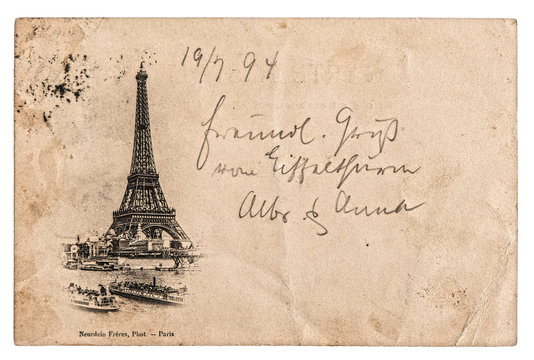 19/7 94
freundl. Gruß
vom Eiffelthurm
Albr & Anna
Neurdein Frères, Phot. — Paris